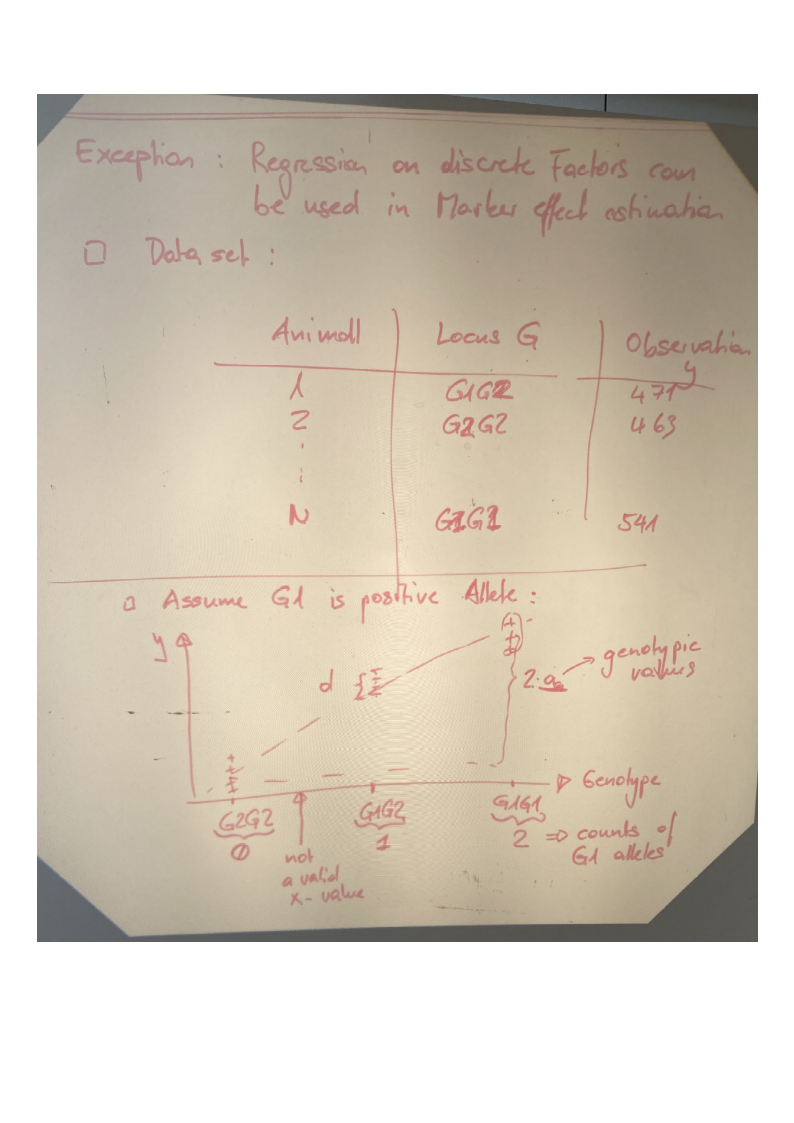 Exception : Regression on discrete Factors can
be used in Marker effect estimation
□ Data set :
Animal | Locus G | Observation y
1 G1G2 471
2 G2G2 463
N G1G1 541
□ Assume G1 is positive Allele :
y
d { 2·a → genotypic
values
Genotype
G2G2 G1G2 G1G1
0 1 2 ⇒ counts of
G1 alleles
not
a valid
x-value